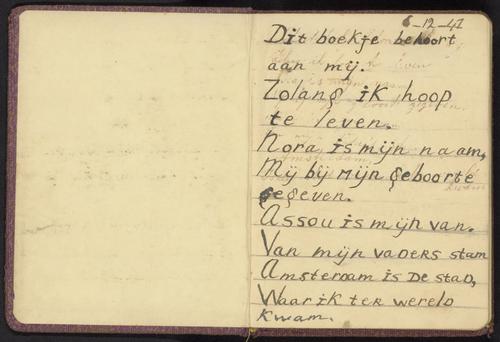 6-12-41
Dit boekje behoort
aan mij.
Zolang ik hoop
te leven.
Nora is mijn naam,
Mij bij mijn geboorte
gegeven.
Assou is mijn van.
Van mijn vaders stam
Amsterdam is de stad,
Waar ik ter wereld
kwam.